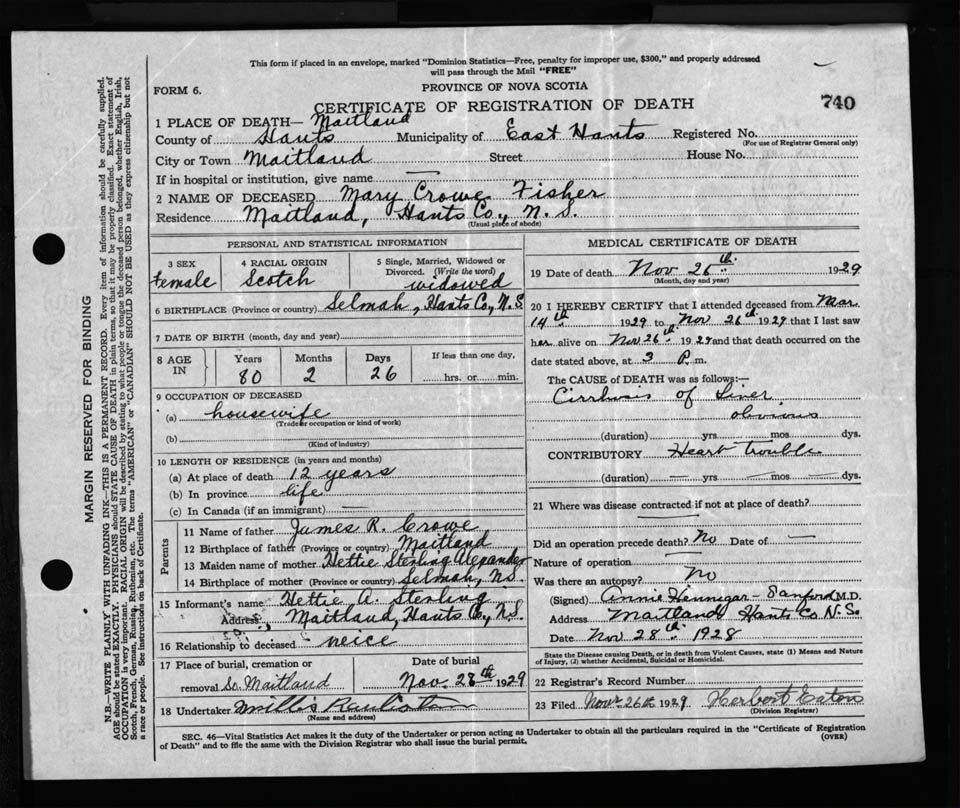 This form if placed in an envelope, marked "Dominion Statistics—Free, penalty for improper use, $300," and properly addressed
will pass through the Mail "FREE"
FORM 6.
PROVINCE OF NOVA SCOTIA
CERTIFICATE OF REGISTRATION OF DEATH
740
1 PLACE OF DEATH— Maitland
County of Hants Municipality of East Hants Registered No.
(For use of Registrar General only)
City or Town Maitland Street House No.
If in hospital or institution, give name —
2 NAME OF DECEASED Mary Crowe Fisher
Residence Maitland, Hants Co., N. S.
(Usual place of abode)
PERSONAL AND STATISTICAL INFORMATION
3 SEX
female
4 RACIAL ORIGIN
Scotch
5 Single, Married, Widowed or
Divorced. (Write the word)
widowed
6 BIRTHPLACE (Province or country) Selmah, Hants Co, N. S
7 DATE OF BIRTH (month, day and year)
8 AGE IN
Years Months Days
80 2 26
If less than one day,
hrs. or min.
9 OCCUPATION OF DECEASED
(a) housewife
(Trade or occupation or kind of work)
(b)
(Kind of industry)
10 LENGTH OF RESIDENCE (in years and months)
(a) At place of death 12 years
(b) In province life
(c) In Canada (if an immigrant) —
Parents
11 Name of father James R. Crowe
12 Birthplace of father (Province or country) Maitland
13 Maiden name of mother Hettie Sterling Alexander
14 Birthplace of mother (Province or country) Selmah, N.S.
15 Informant's name Hettie A. Sterling
Address Maitland, Hants Co, N.S.
16 Relationship to deceased neice
17 Place of burial, cremation or
removal So. Maitland
Date of burial
Nov. 28th 1929
18 Undertaker
(Name and address)
MEDICAL CERTIFICATE OF DEATH
19 Date of death Nov 26th 1929
(Month, day and year)
20 I HEREBY CERTIFY that I attended deceased from Mar
14th 1929 to Nov 26th 1929 that I last saw
her alive on Nov 26th 1929 and that death occurred on the
date stated above, at 3 P. m.
The CAUSE of DEATH was as follows:—
Cirrhosis of Liver
obvious
(duration) yrs mos dys.
CONTRIBUTORY Heart trouble
(duration) — yrs — mos — dys.
21 Where was disease contracted if not at place of death?
—
Did an operation precede death? No Date of —
Nature of operation —
Was there an autopsy? No
(Signed) Annie Hennigar - Sanford M.D.
Address Maitland Hants Co N.S.
Date Nov 28th 1928
State the Disease causing Death, or in death from Violent Causes, state (1) Means and Nature
of Injury, (2) whether Accidental, Suicidal or Homicidal.
22 Registrar's Record Number
23 Filed Nov 26th 1929 Herbert Eaton
(Division Registrar)
SEC. 46—Vital Statistics Act makes it the duty of the Undertaker or person acting as Undertaker to obtain all the particulars required in the "Certificate of Registration
of Death" and to file the same with the Division Registrar who shall issue the burial permit.
(OVER)
MARGIN RESERVED FOR BINDING
N.B.—WRITE PLAINLY WITH UNFADING INK—THIS IS A PERMANENT RECORD. Every item of information should be carefully supplied.
AGE should be stated EXACTLY. PHYSICIANS should STATE CAUSE OF DEATH in plain terms, so that it may be properly classified. Exact statement of
OCCUPATION is very important. RACIAL ORIGIN will be described by stating to what people or tongue the deceased person belonged, whether English, Irish,
Scotch, French, German, Russian, Ruthenian, etc. The terms "AMERICAN" or "CANADIAN" SHOULD NOT BE USED as they express citizenship but not
a race or people. See instructions on back of Certificate.